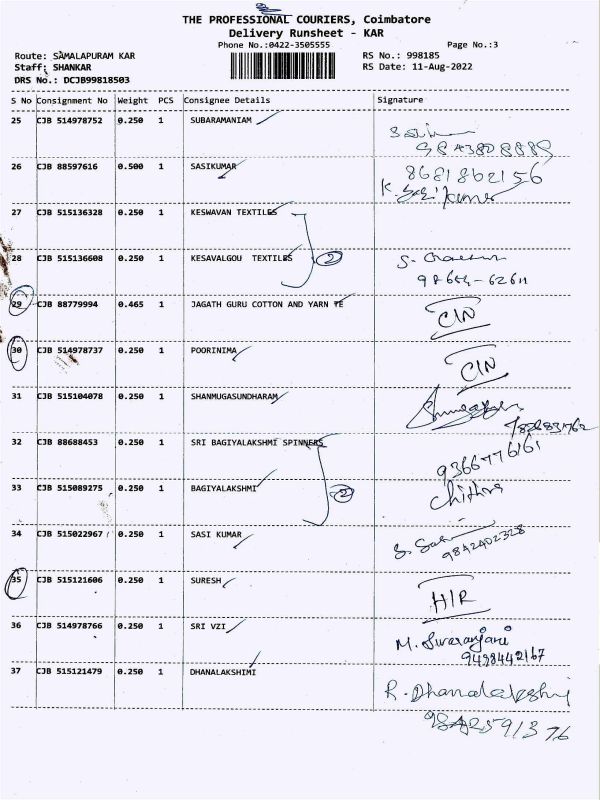 THE PROFESSIONAL COURIERS, Coimbatore
Delivery Runsheet - KAR
Phone No.:0422-3505555 Page No.:3
Route: SAMALAPURAM KAR RS No.: 998185
Staff: SHANKAR RS Date: 11-Aug-2022
DRS No.: DCJB99818503
S No Consignment No Weight PCS Consignee Details Signature
25 CJB 514978752 0.250 1 SUBARAMANIAM
9843808889
26 CJB 88597616 0.500 1 SASIKUMAR 8681862156
K. Sasikumar
27 CJB 515136328 0.250 1 KESWAVAN TEXTILES
28 CJB 515136608 0.250 1 KESAVALGOU TEXTILES 2 S.
29 CJB 88779994 0.465 1 JAGATH GURU COTTON AND YARN TE CIN
30 CJB 514978737 0.250 1 POORINIMA CIN
31 CJB 515104078 0.250 1 SHANMUGASUNDHARAM
32 CJB 88688453 0.250 1 SRI BAGIYALAKSHMI SPINNERS 9366776161
33 CJB 515089275 0.250 1 BAGIYALAKSHMI 2 Chithra
34 CJB 515022967 0.250 1 SASI KUMAR S.
9842402328
35 CJB 515121606 0.250 1 SURESH HIR
36 CJB 514978766 0.250 1 SRI VZI M. Swaranjani
9498442167
37 CJB 515121479 0.250 1 DHANALAKSHIMI R. Dhanalakshmi
9842591376